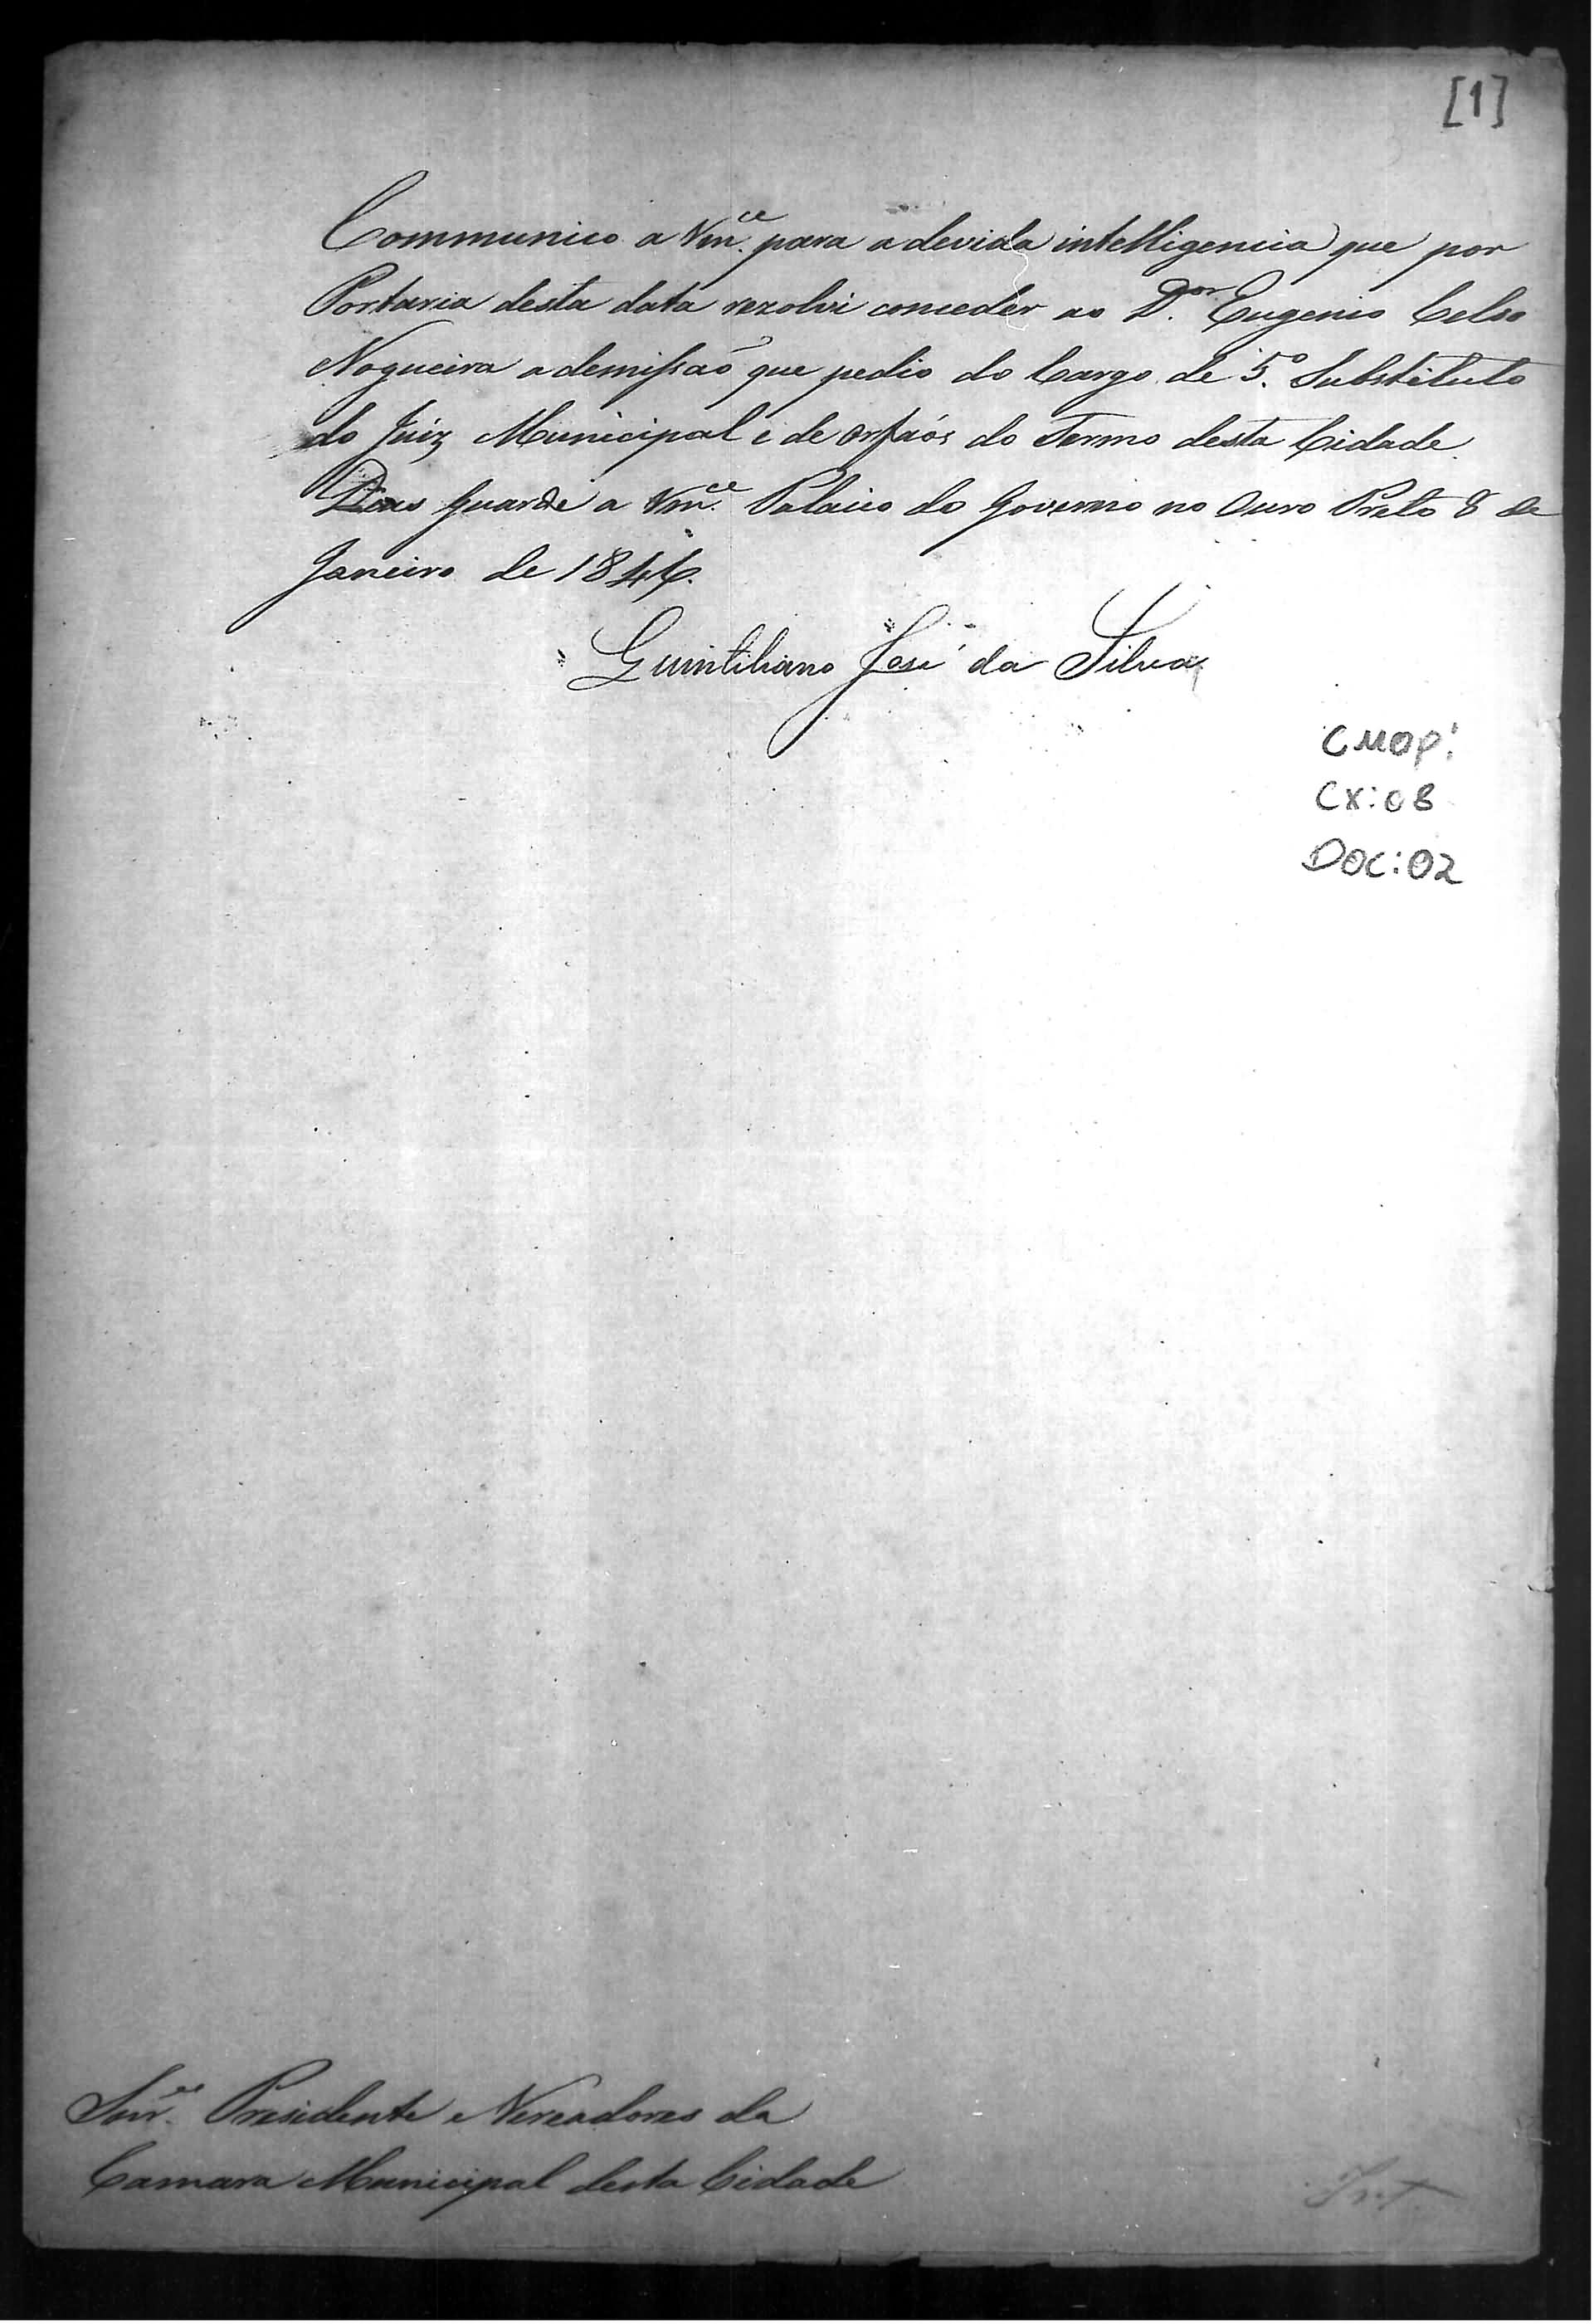 [1]
Communico a Vm.ce para a devida intelligencia que por
Portaria desta data rezolvi conceder ao D.or Eugenio Celso
Nogueira a demissaõ que pedio do Cargo de 5.º Substituto
do Juiz Municipal e de orfaõs do Termo desta Cidade.
Deos Guarde a Vm.ce Palacio do Governo no Ouro Preto 8 de
Janeiro de 1846.
Quintiliano José da Silva
CMOP:
CX:08
DOC:02
Snr.es Presidente e Vereadores da
Camara Municipal desta Cidade